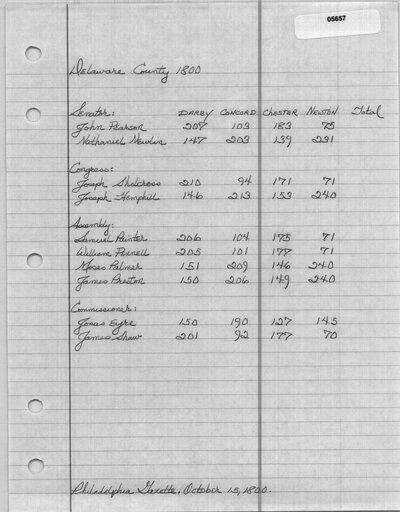 05657
Delaware County 1800
Senator: DARBY CONCORD CHESTER NEWTON Total
John Pearson 207 103 183 75
Nathaniel Newlin 147 203 139 231
Congress:
Joseph Shelcross 210 94 171 71
Joseph Hemphill 146 213 153 240
Assembly:
Samuel Painter 206 104 175 71
William Pennell 205 101 177 71
Moses Palmer 151 209 146 240
James Preston 150 206 149 240
Commissioner:
Jonas Eyre 150 190 127 145
James Shaw 201 92 177 70
Philadelphia Gazette, October 15, 1800.